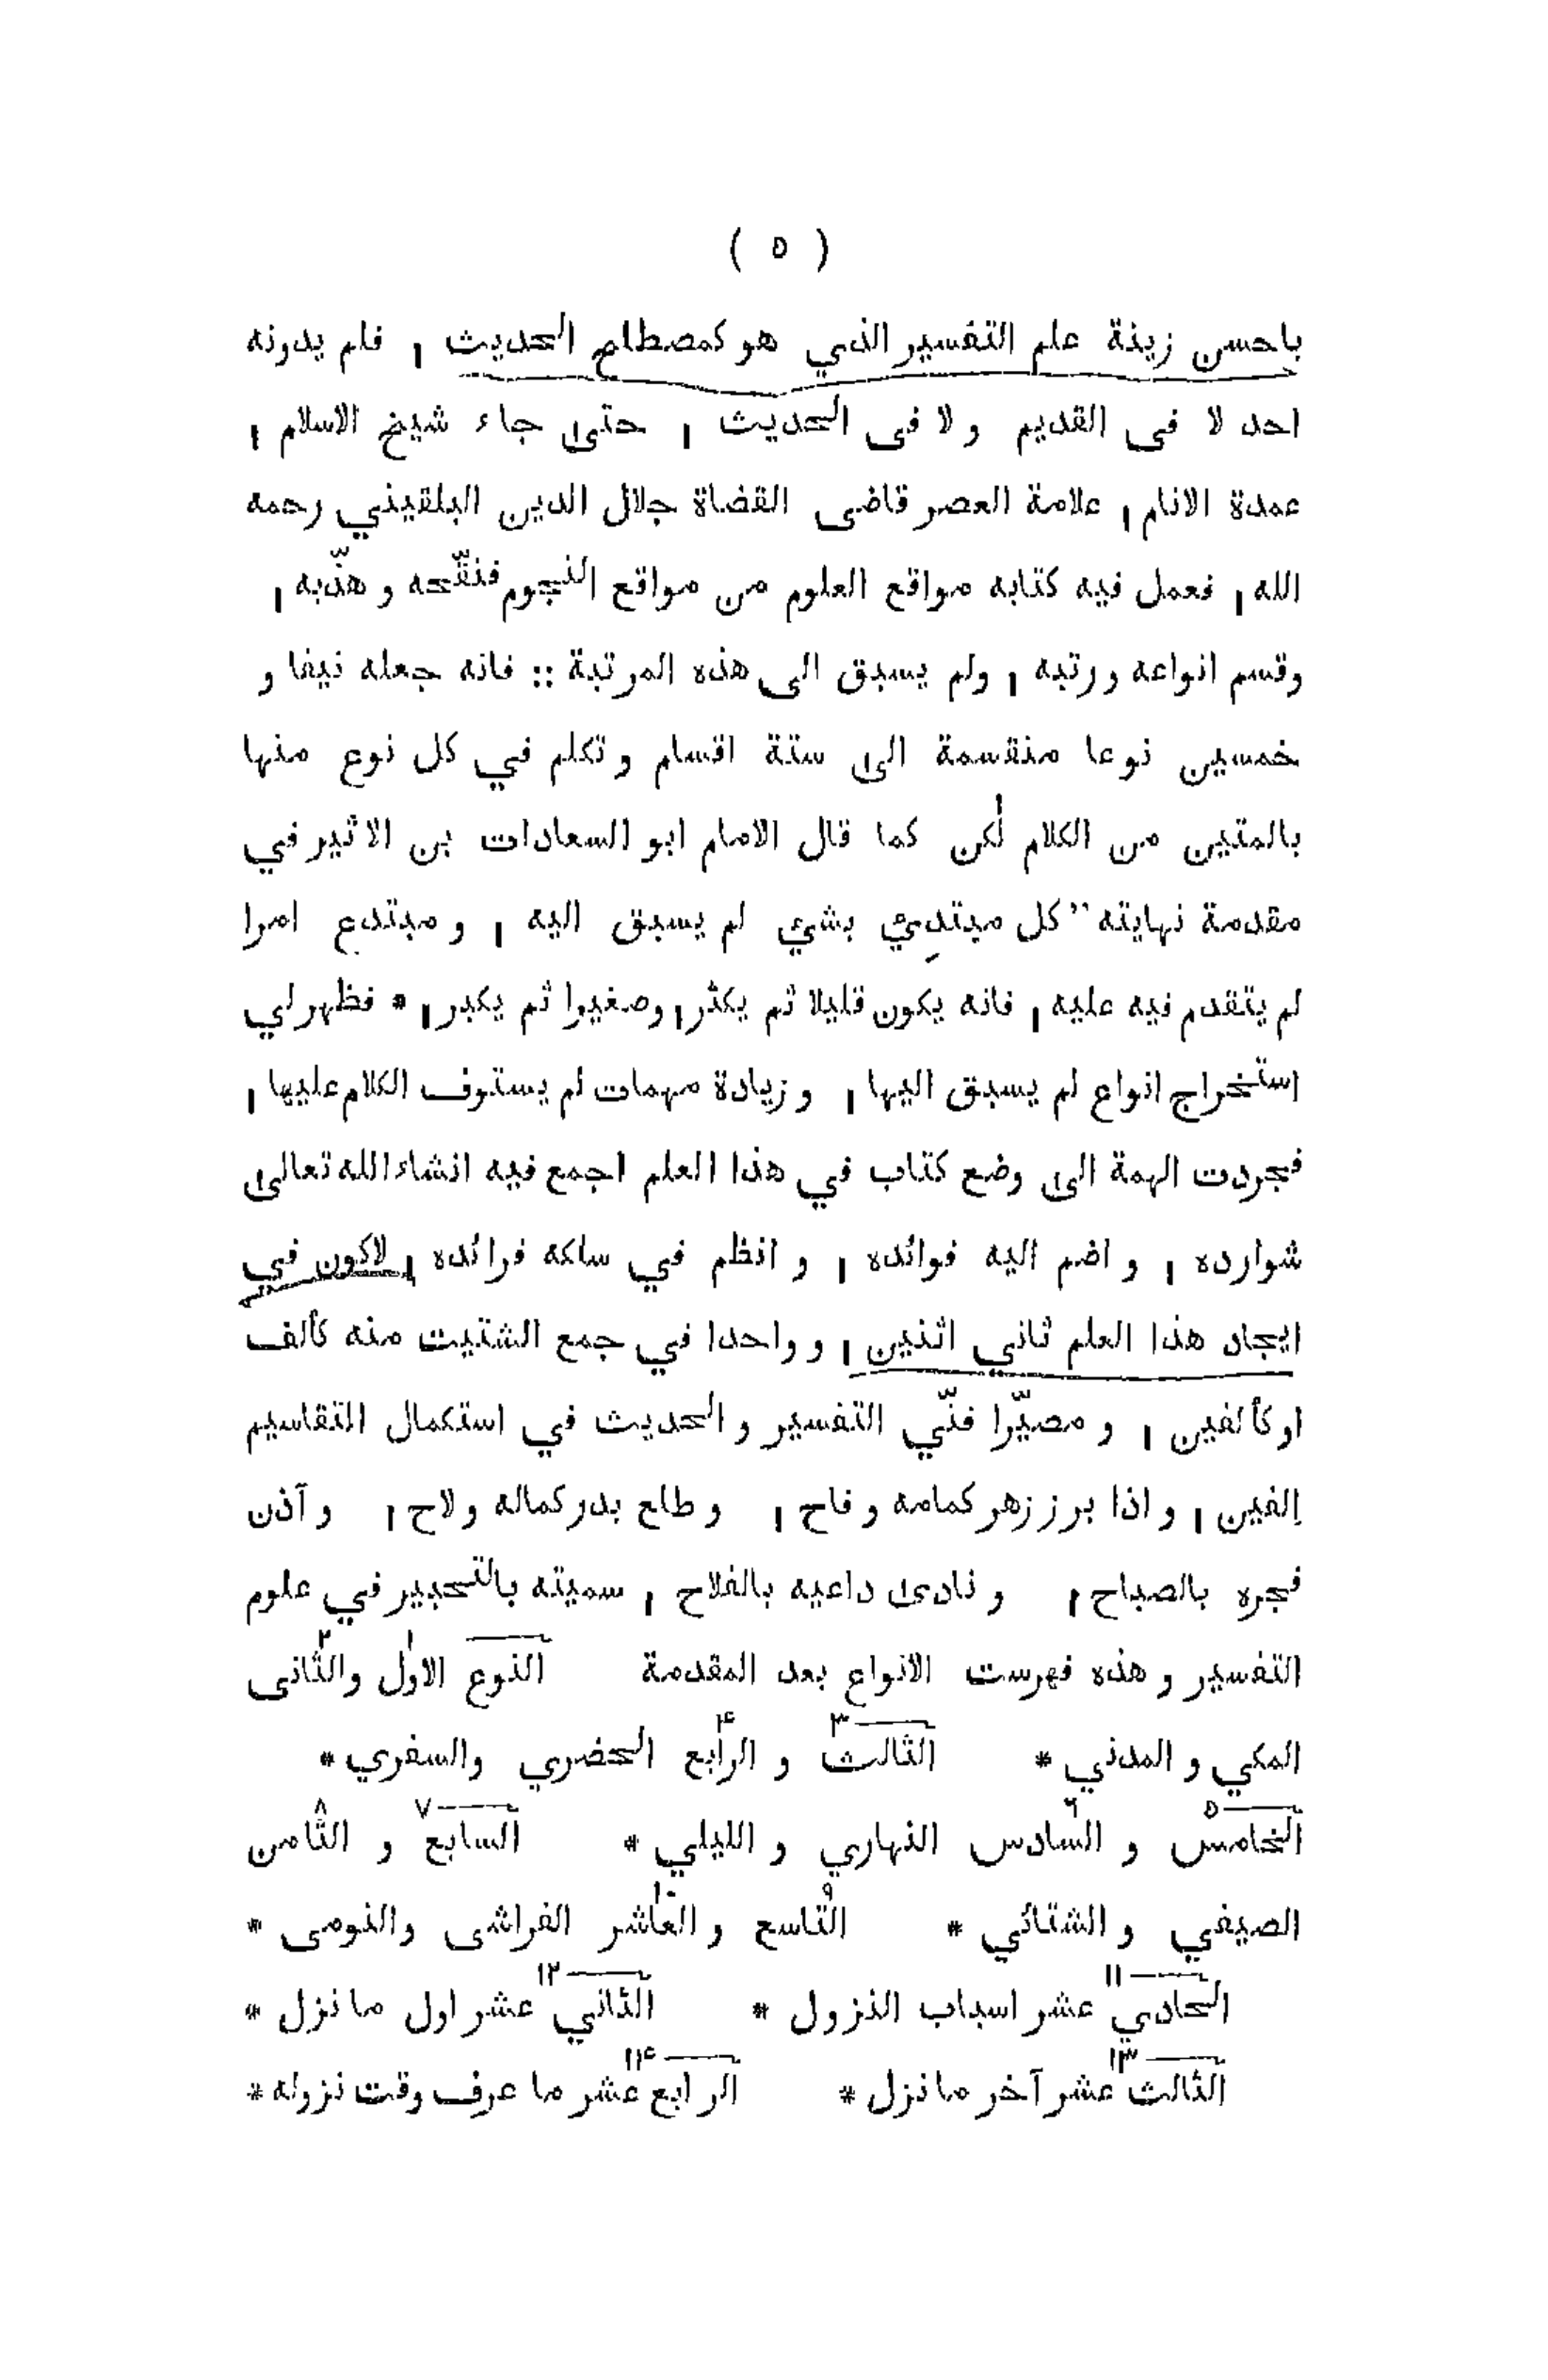 ( ٥ )
باحسن زينة علم التفسير الذي هو كمصطلح الحديث ، فلم يدونه
احد لا فى القديم و لا فى الحديث ، حتى جاء شيخ الاسلام ،
عمدة الانام ، علامة العصر قاضى القضاة جلال الدين البلقيني رحمه
الله ، فعمل فيه كتابه مواقع العلوم من مواقع النجوم فنقّحه و هذّبه ،
وقسم انواعه ورتبه ، ولم يسبق الى هذه المرتبة :: فانه جعله نيفا و
خمسين نوعا منقسمة الى ستة اقسام و تكلم في كل نوع منها
بالمتين من الكلام لٰكن كما قال الامام ابو السعادات بن الاثير في
مقدمة نهايته ” كل مبتدِيء بشيء لم يسبق اليه ، و مبتدع امرا
لم يتقدم فيه عليه ، فانه يكون قليلا ثم يكثر ، وصغيرا ثم يكبر ، * فظهر لي
استخراج انواع لم يسبق اليها ، و زيادة مهمات لم يستوف الكلام عليها ،
فجردت الهمة الى وضع كتاب في هذا العلم اجمع فيه انشاء الله تعالى
شوارده ، و اضم اليه فوائده ، و انظم في سلكه فرائده ، لاكون في
ايجاد هذا العلم ثاني اثنين ، و واحدا في جمع الشتيت منه كألف
او كألفين ، و مصيّرا فنّي التفسير و الحديث في استكمال التقاسيم
اِلفين ، و اذا برز زهر كمامه و فاح ، و طلع بدر كماله و لاح ، و آذن
فجره بالصباح ، و نادى داعيه بالفلاح ، سميته بالتحبير في علوم
التفسير و هذه فهرست الانواع بعد المقدمة النوع الاول ١ والثانى ٢
المكي و المدني * الثالث ٣ و الرابع ۴ الحضري والسفري *
الخامس ٥ و السادس ٦ النهاري و الليلي * السابع ٧ و الثامن ٨
الصيفي و الشتائي * التاسع ٩ و العاشر ١٠ الفراشى والنومى *
الحادي ١١ عشر اسباب النزول * الثاني ١٢ عشر اول ما نزل *
الثالث ١٣ عشر آخر ما نزل * الرابع ١۴ عشر ما عرف وقت نزوله *